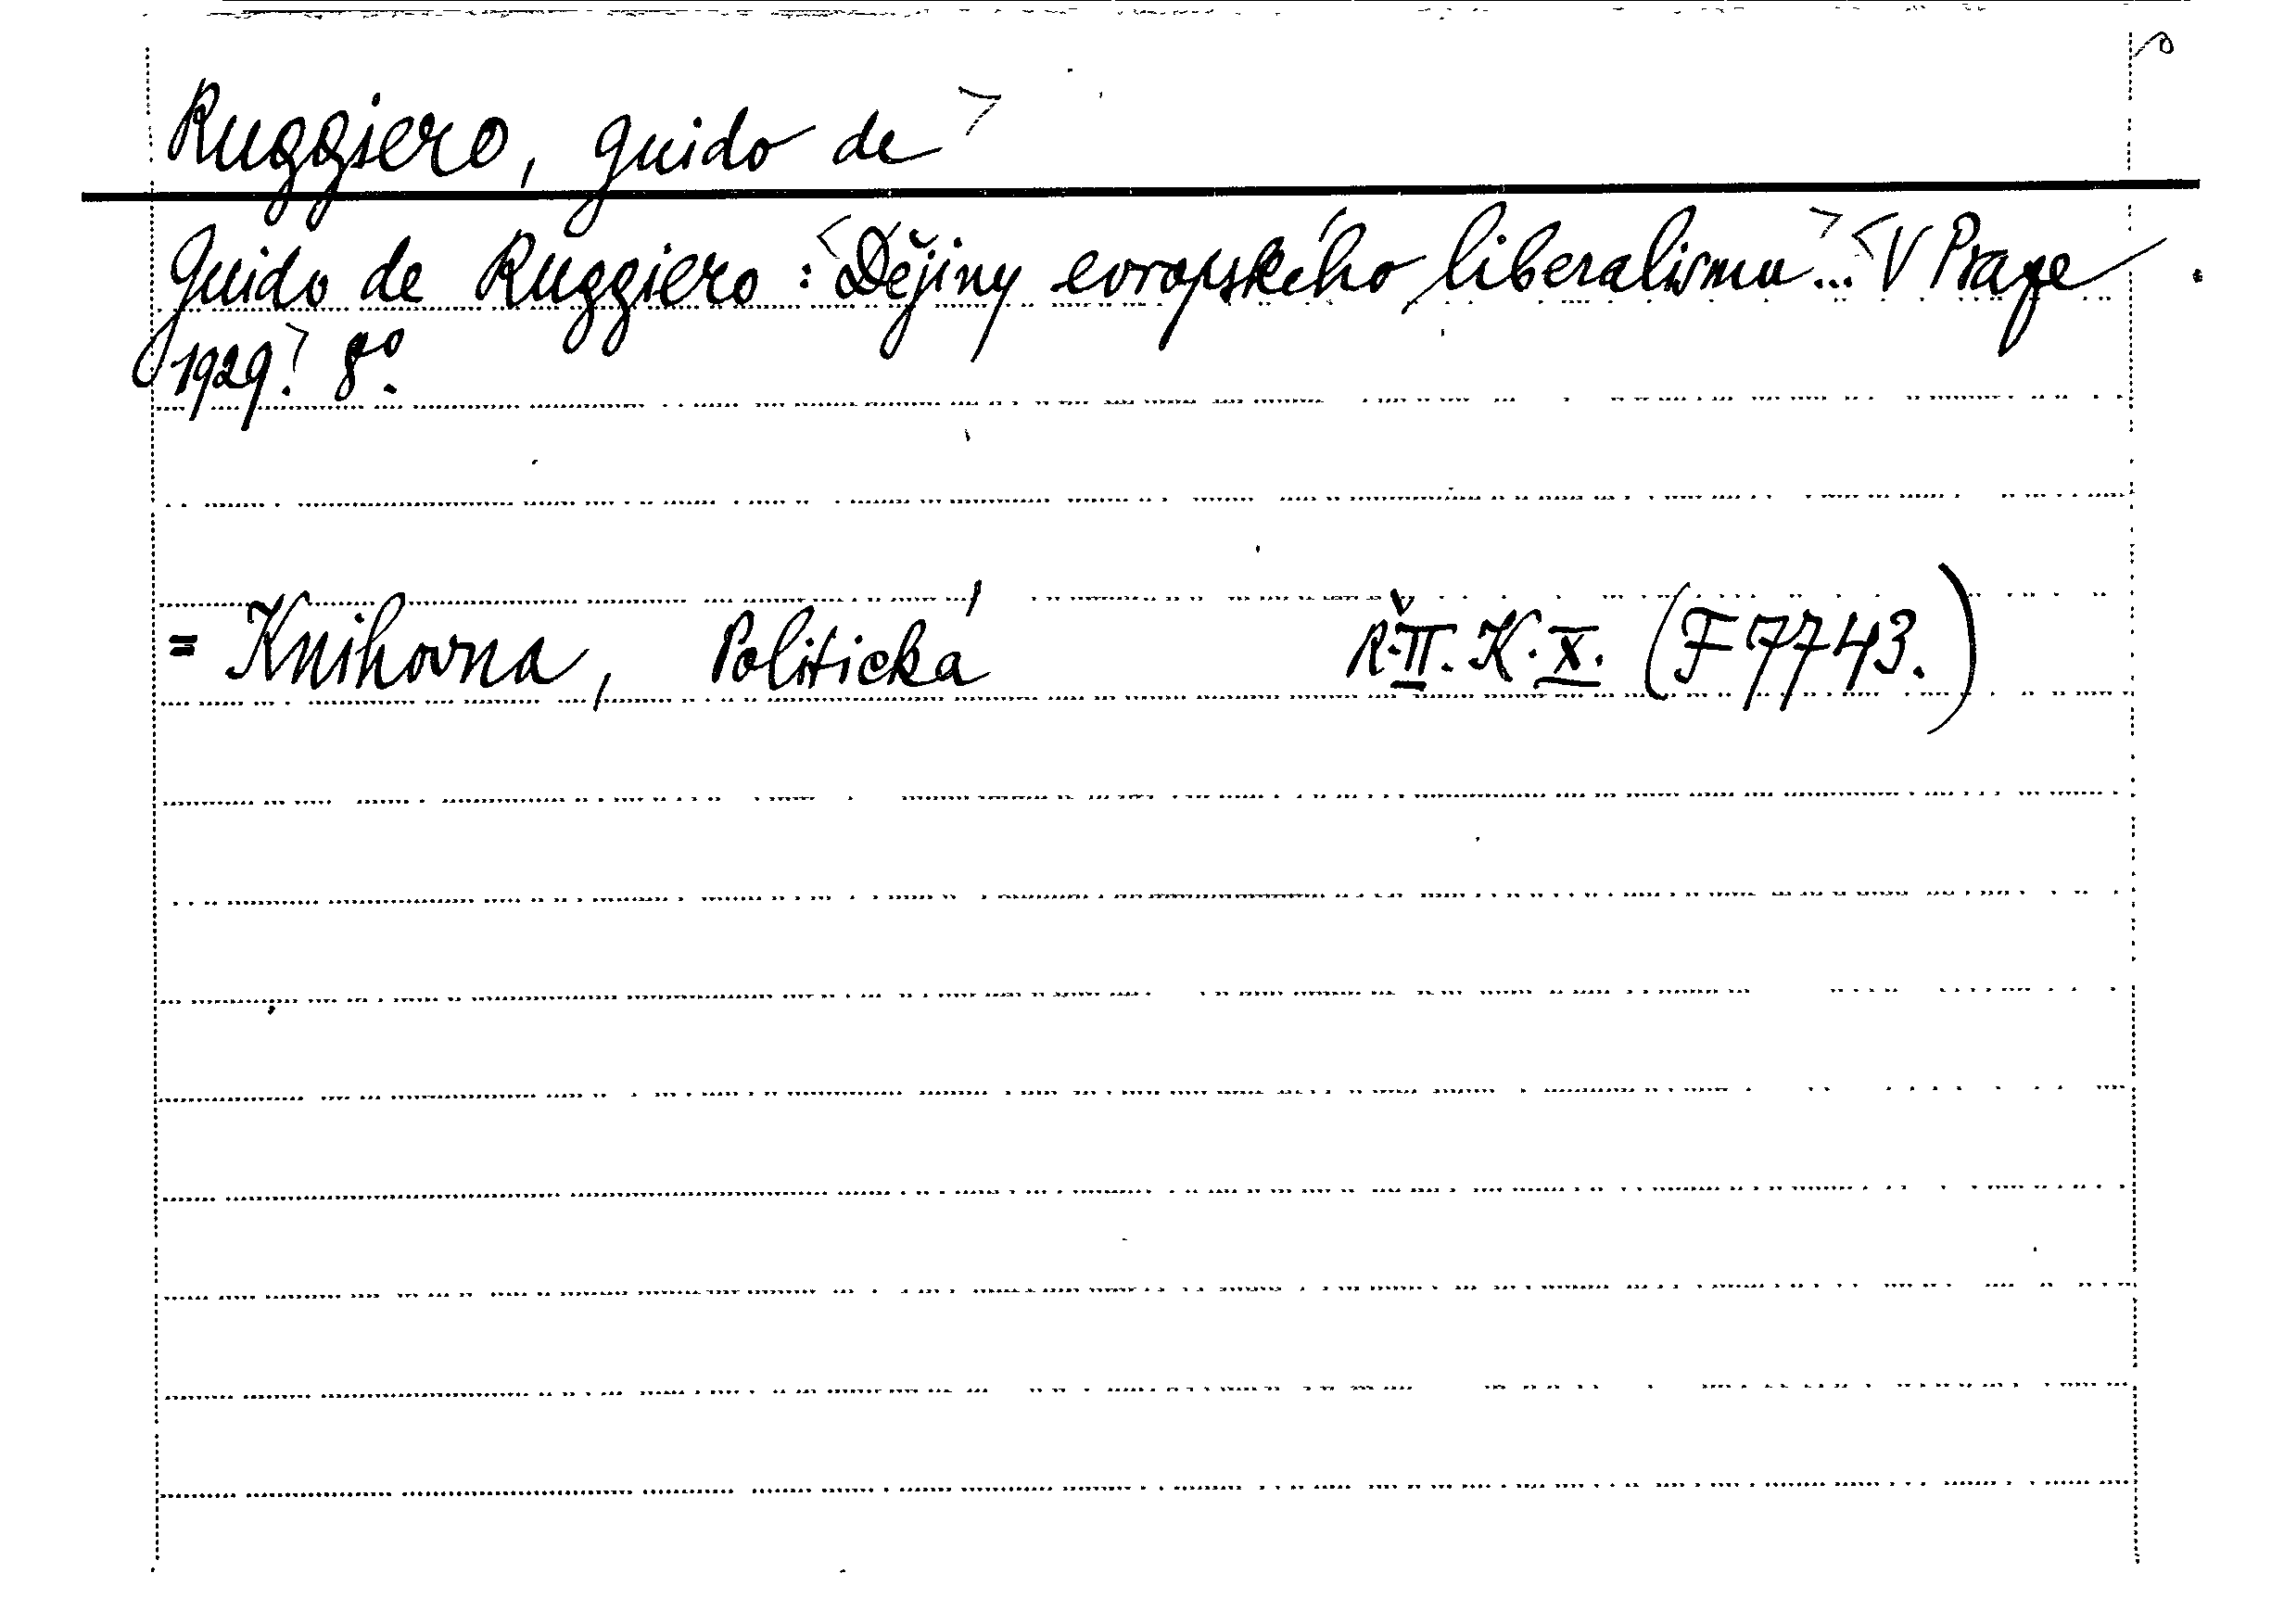 Ruggiero, Guido de
Guido de Ruggiero: Dějiny evropského liberalismu... V Praze
1929. 8°.
= Knihovna, Politická Ř.II.K.X. (F 7743.)